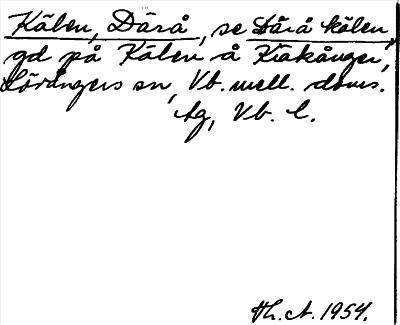 Kälen, Därå, se Dårå kälen,
gd på Kälen å Kräkånger,
Lövångers sn, Vb. mell. doms.
tg, Vb. l.
Hh. A. 1954.